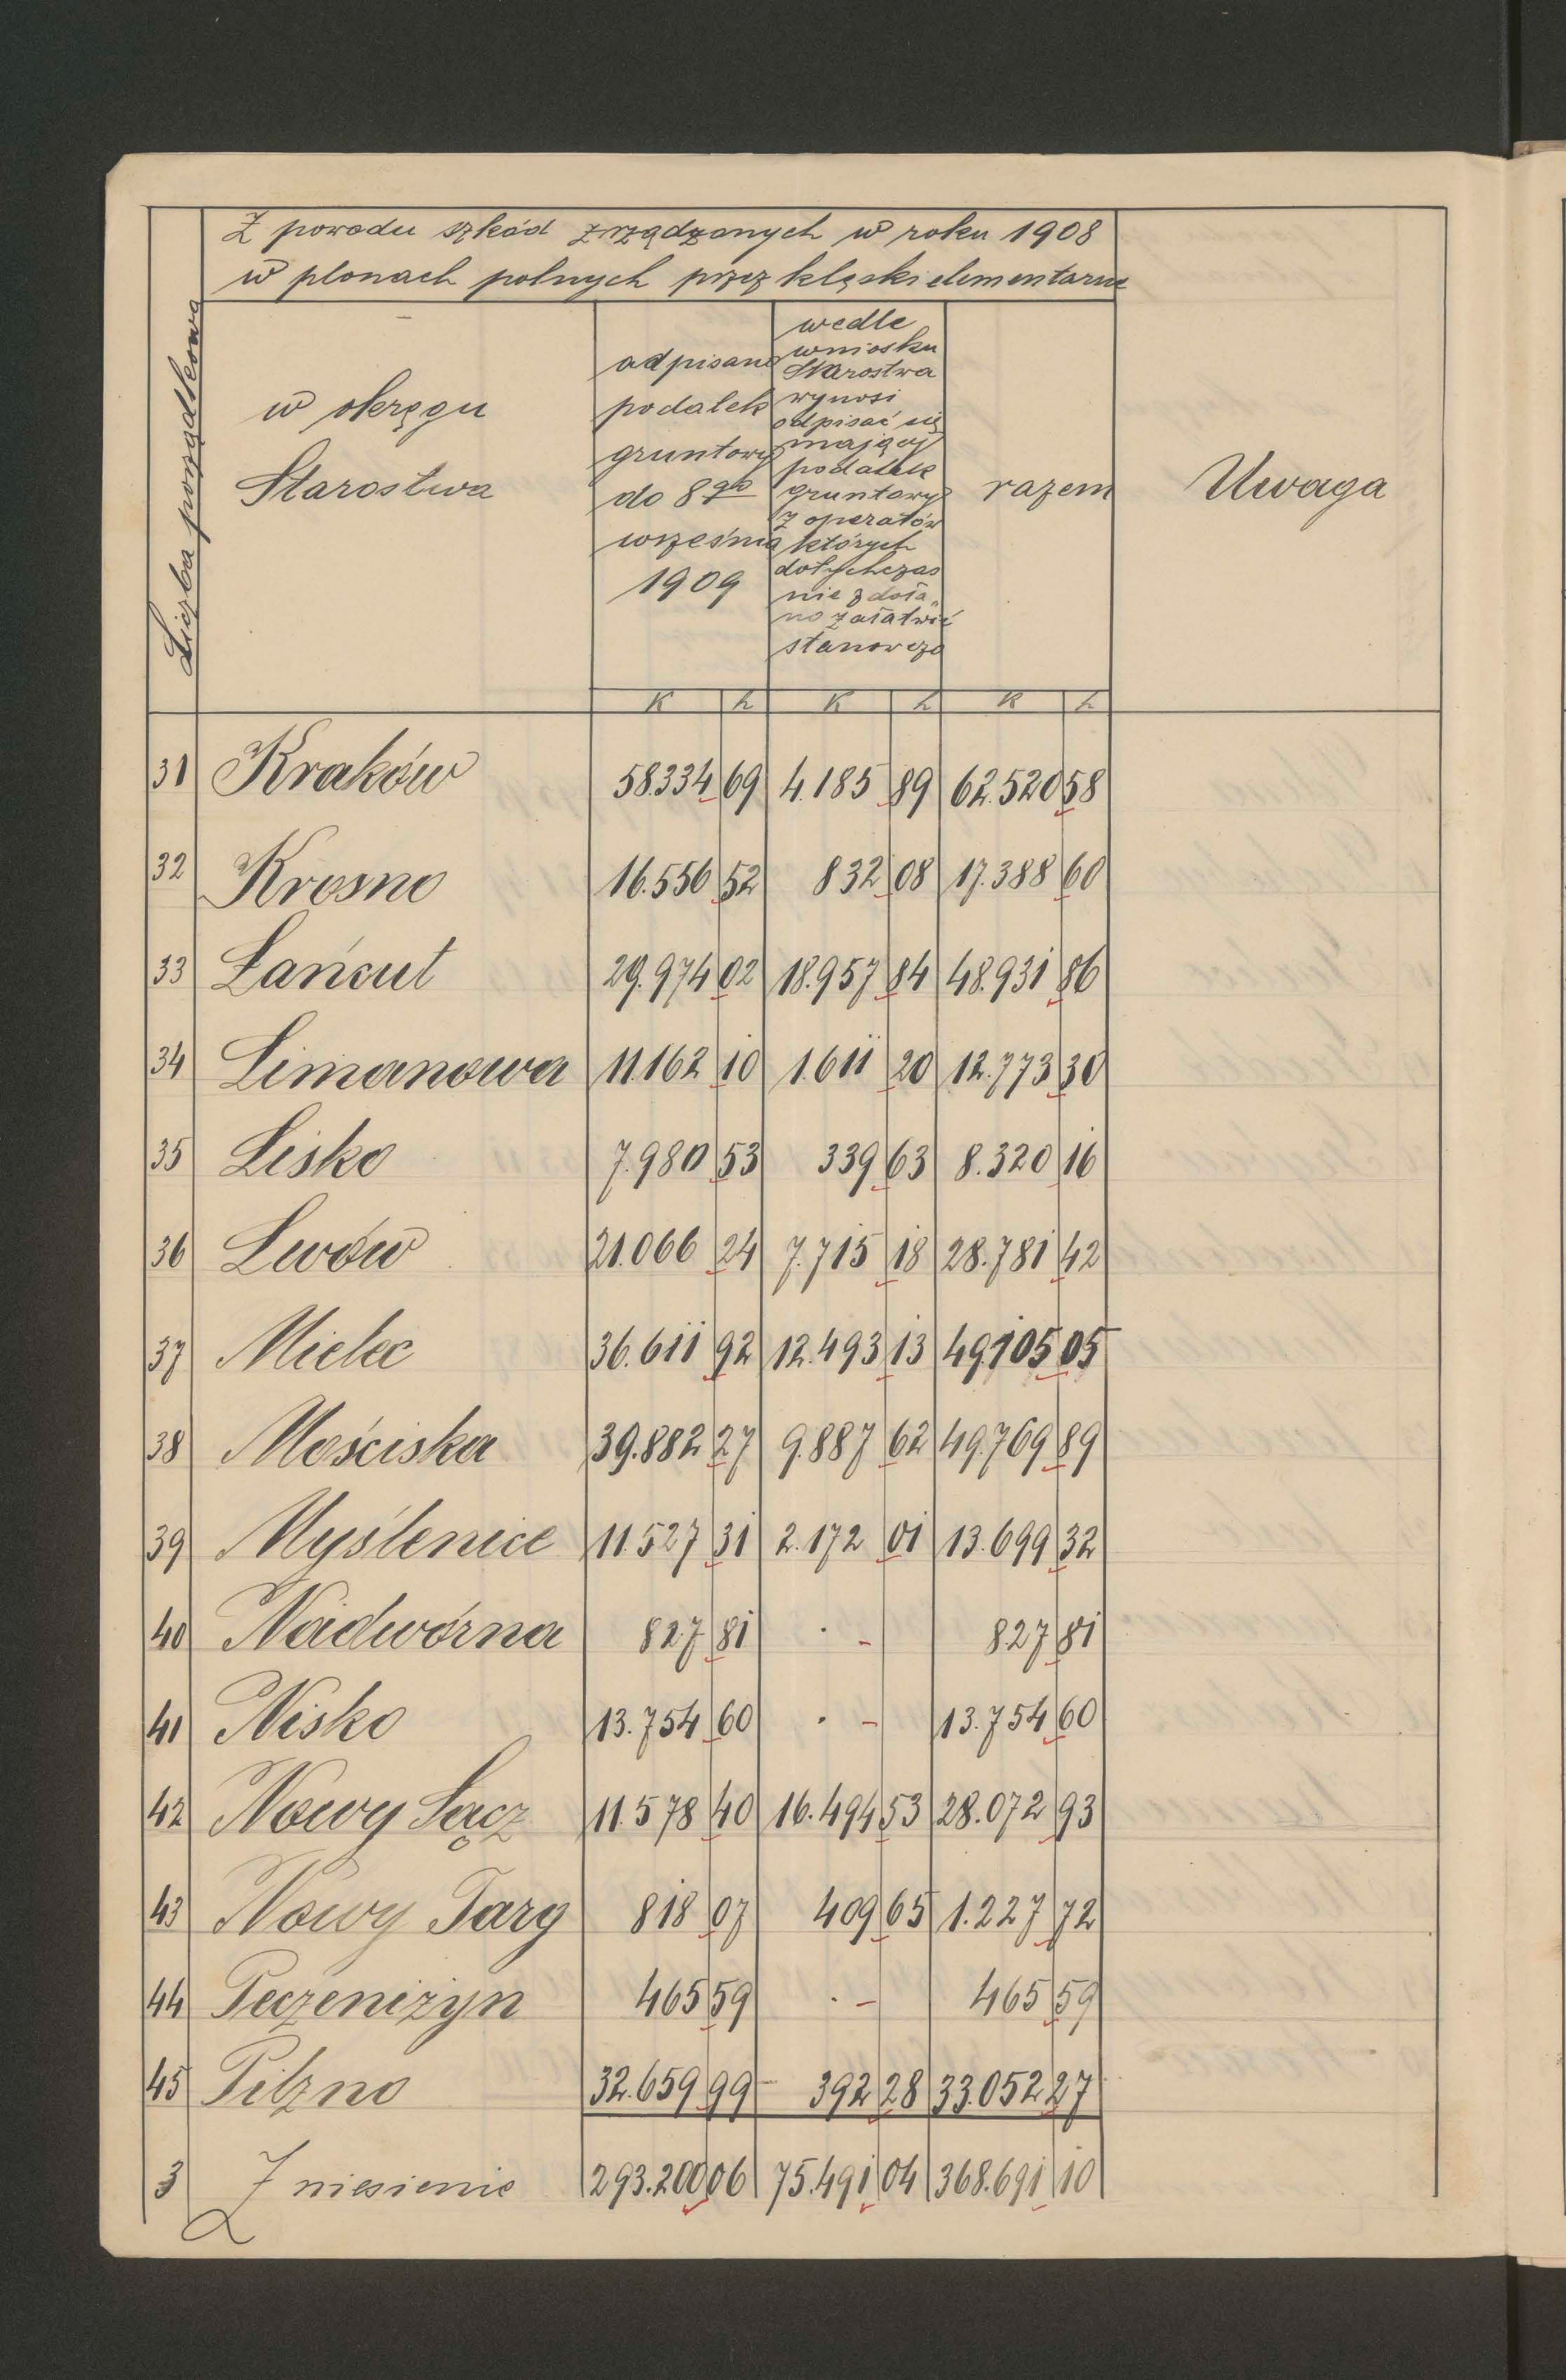 Z powodu szkód zrządzonych w roku 1908
w plonach polnych przez klęski elementarne
Liczba porządkowa
w okręgu
Starostwa
odpisano
podatek
gruntowy
do 8go
września
1909
wedle
wniosku
Starostwa
wynosi
odpisać się
mający
podatek
gruntowy
z operatów
których
dotychczas
nie zdoła„
no załatwić
stanowczo
razem
Uwaga
K h K h K h
31 Kraków 58.334 69 4.185 89 62.520 58
32 Krosno 16.556 52 832 08 17.388 60
33 Łańcut 29.974 02 18.957 84 48.931 86
34 Limanowa 11.162 10 1.611 20 12.773 30
35 Lisko 7.980 53 339 63 8.320 16
36 Lwów 21.066 24 7.715 18 28.781 42
37 Mielec 36.611 92 12.493 13 49.105 05
38 Mościska 39.882 27 9.887 62 49.769 89
39 Myślenice 11.527 31 2.172 01 13.699 32
40 Nadwórna 827 81 . - 827 81
41 Nisko 13.754 60 . - 13.754 60
42 Nowy Sącz 11.578 40 16.494 53 28.072 93
43 Nowy Targ 818 07 409 65 1.227 72
44 Peczeniżyn 465 59 . - 465 59
45 Pilzno 32.659 99 392 28 33.052 27
3 Zniesienie 293.200 06 75.491 04 368.691 10